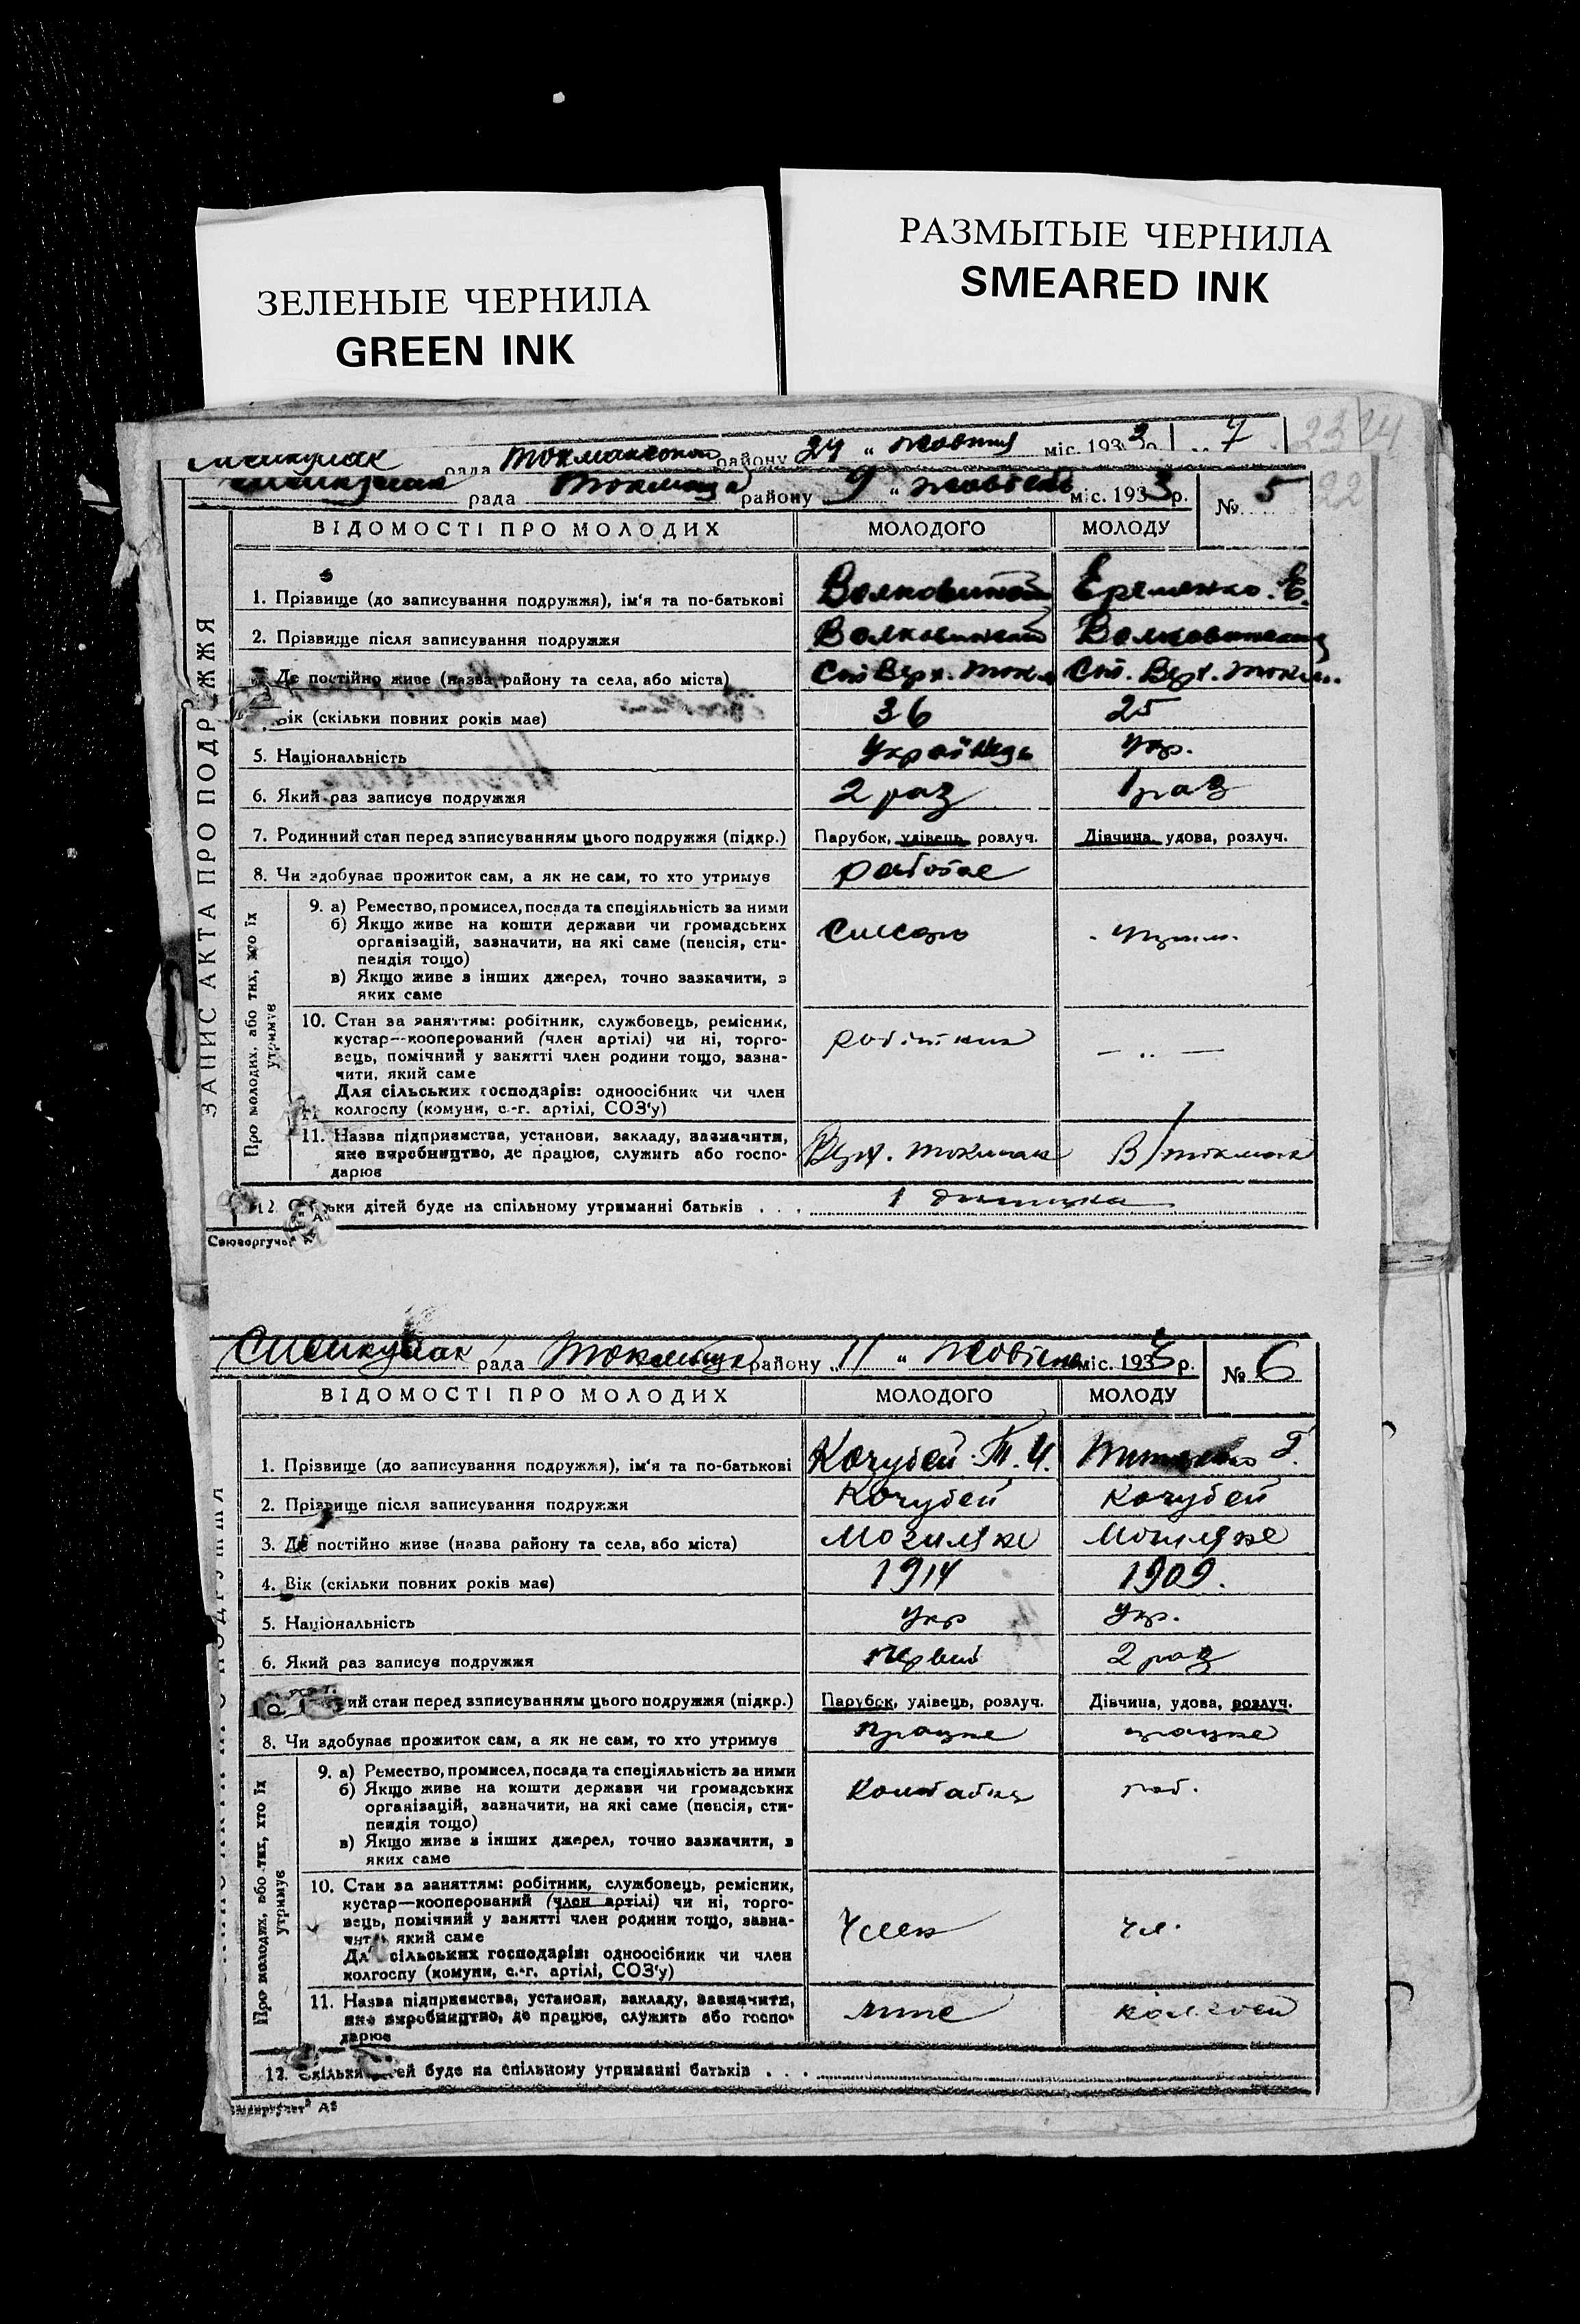 РАЗМЫТЫЕ ЧЕРНИЛА
SMEARED INK
ЗЕЛЕНЫЕ ЧЕРНИЛА
GREEN INK
рада району 24 „ жовтня міс. 1933 р. № 7
23 24
рада району 9 „ жовтень міс. 1933 р. № 5
22
ЗАПИС АКТА ПРО ПОДРУЖЖЯ
ВІДОМОСТІ ПРО МОЛОДИХ МОЛОДОГО МОЛОДУ
1. Прізвище (до записування подружжя), ім'я та по-батькові Еременко. Е.
2. Прізвище після записування подружжя
Де постійно живе (назва району та села, або міста) Ст. Верх. Токм.
Вік (скільки повних років має) 36 25
5. Національність Українець Укр.
6. Який раз записує подружжя 2 раз 1 раз
7. Родинний стан перед записуванням цього подружжя (підкр.) Парубок, удівець, розлуч. Дівчина, удова, розлуч.
8. Чи здобуває прожиток сам, а як не сам, то хто утримує работае
Про молодих, або тих, хто їх утримує
9. а) Ремество, промисел, посада та спеціяльність за ними
б) Якщо живе на кошти держави чи громадських
організацій, зазначити, на які саме (пенсія, сти-
пендія тощо)
в) Якщо живе з інших джерел, точно зазначити, з
яких саме
слесарь
10. Стан за заняттям: робітник, службовець, ремісник,
кустар—кооперований (член артілі) чи ні, торго-
вець, помічний у занятті член родини тощо, зазна-
чити, який саме
Для сільських господарів: одноосібник чи член
колгоспу (комуни, с.-г. артілі, СОЗ'у)
робітник — „ —
11. Назва підприємства, установи, закладу, зазначити,
яке виробництво, де працює, служить або госпо-
дарює
Верх. Токмак В/токмак
12. Скільки дітей буде на спільному утриманні батьків . . . 1 дитина
рада району „ 11 „ Жовтень міс. 1933 р. № 6
ВІДОМОСТІ ПРО МОЛОДИХ МОЛОДОГО МОЛОДУ
1. Прізвище (до записування подружжя), ім'я та по-батькові Кочубей Т. И.
2. Прізвище після записування подружжя Кочубей Кочубей
3. Де постійно живе (назва району та села, або міста)
4. Вік (скільки повних років має) 1914 1909.
5. Національність Укр Укр.
6. Який раз записує подружжя первий 2 раз
ий стан перед записуванням цього подружжя (підкр.) Парубок, удівець, розлуч. Дівчина, удова, розлуч.
8. Чи здобуває прожиток сам, а як не сам, то хто утримує працюе працюе
Про молодих, або тих, хто їх утримує
9. а) Ремество, промисел, посада та спеціяльність за ними
б) Якщо живе на кошти держави чи громадських
організацій, зазначити, на які саме (пенсія, сти-
пендія тощо)
в) Якщо живе з інших джерел, точно зазначити, з
яких саме
роб.
10. Стан за заняттям: робітник, службовець, ремісник,
кустар—кооперований (член артілі) чи ні, торго-
вець, помічний у занятті член родини тощо, зазна-
чити, який саме
Для сільських господарів: одноосібник чи член
колгоспу (комуни, с.-г. артілі, СОЗ'у)
Член чл.
11. Назва підприємства, установи, закладу, зазначити,
яке виробництво, де працює, служить або госпо-
дарює
12. Скільки дітей буде на спільному утриманні батьків . . .